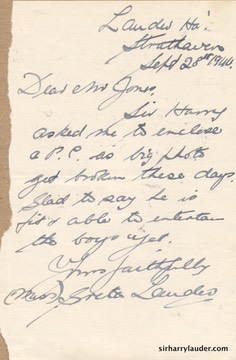 Lauder Ha'.
Strathaven
Sept 28th 1944.
Dear Mr Jones,
Sir Harry
asked me to enclose
a P.C. as big photo
get broken these days.
Glad to say he is
fit & able to entertain
the boys yet.
Yours faithfully
(Miss) Greta Lauder
sirharrylauder.com